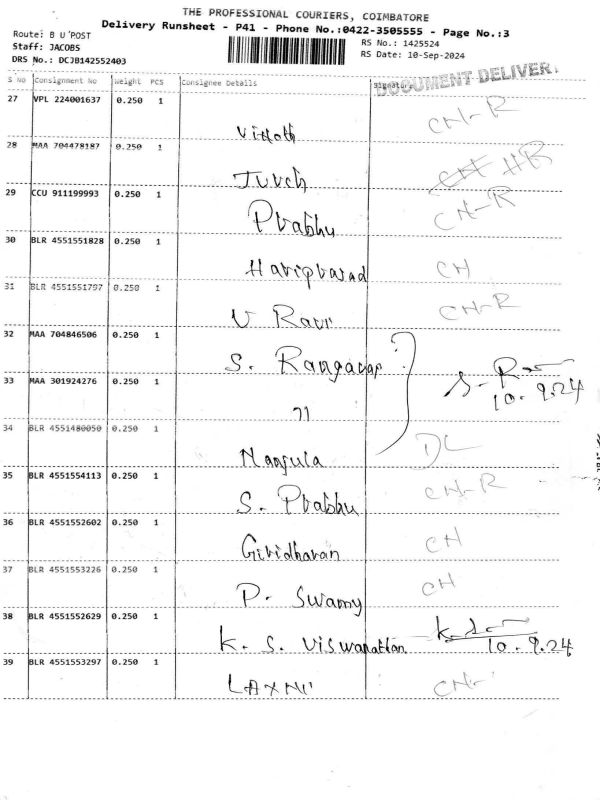 THE PROFESSIONAL COURIERS, COIMBATORE
Delivery Runsheet - P41 - Phone No.:0422-3505555 - Page No.:3
Route: B U'POST
RS No.: 1425524
Staff: JACOBS
RS Date: 10-Sep-2024
DRS No.: DCJB142552403
DOCUMENT DELIVER
S No Consignment No Weight PCS Consignee Details Signature
27 VPL 224001637 0.250 1 CN-R
28 MAA 704478187 0.250 1 CH HR
29 CCU 911199993 0.250 1 Prabhu CN-R
30 BLR 4551551828 0.250 1 Hariprasad CH
31 BLR 4551551797 0.250 1 V Ravi CN-R
32 MAA 704846506 0.250 1 S. Rangarap
S. R
10.9.24
33 MAA 301924276 0.250 1 71
34 BLR 4551480050 0.250 1 Manjula DL
35 BLR 4551554113 0.250 1 S. Prabhu CN-R
36 BLR 4551552602 0.250 1 Giridharan CH
37 BLR 4551553226 0.250 1 P. Swamy CH
38 BLR 4551552629 0.250 1 K. S. Viswanathan
10.9.24
39 BLR 4551553297 0.250 1 LAXMI CN-